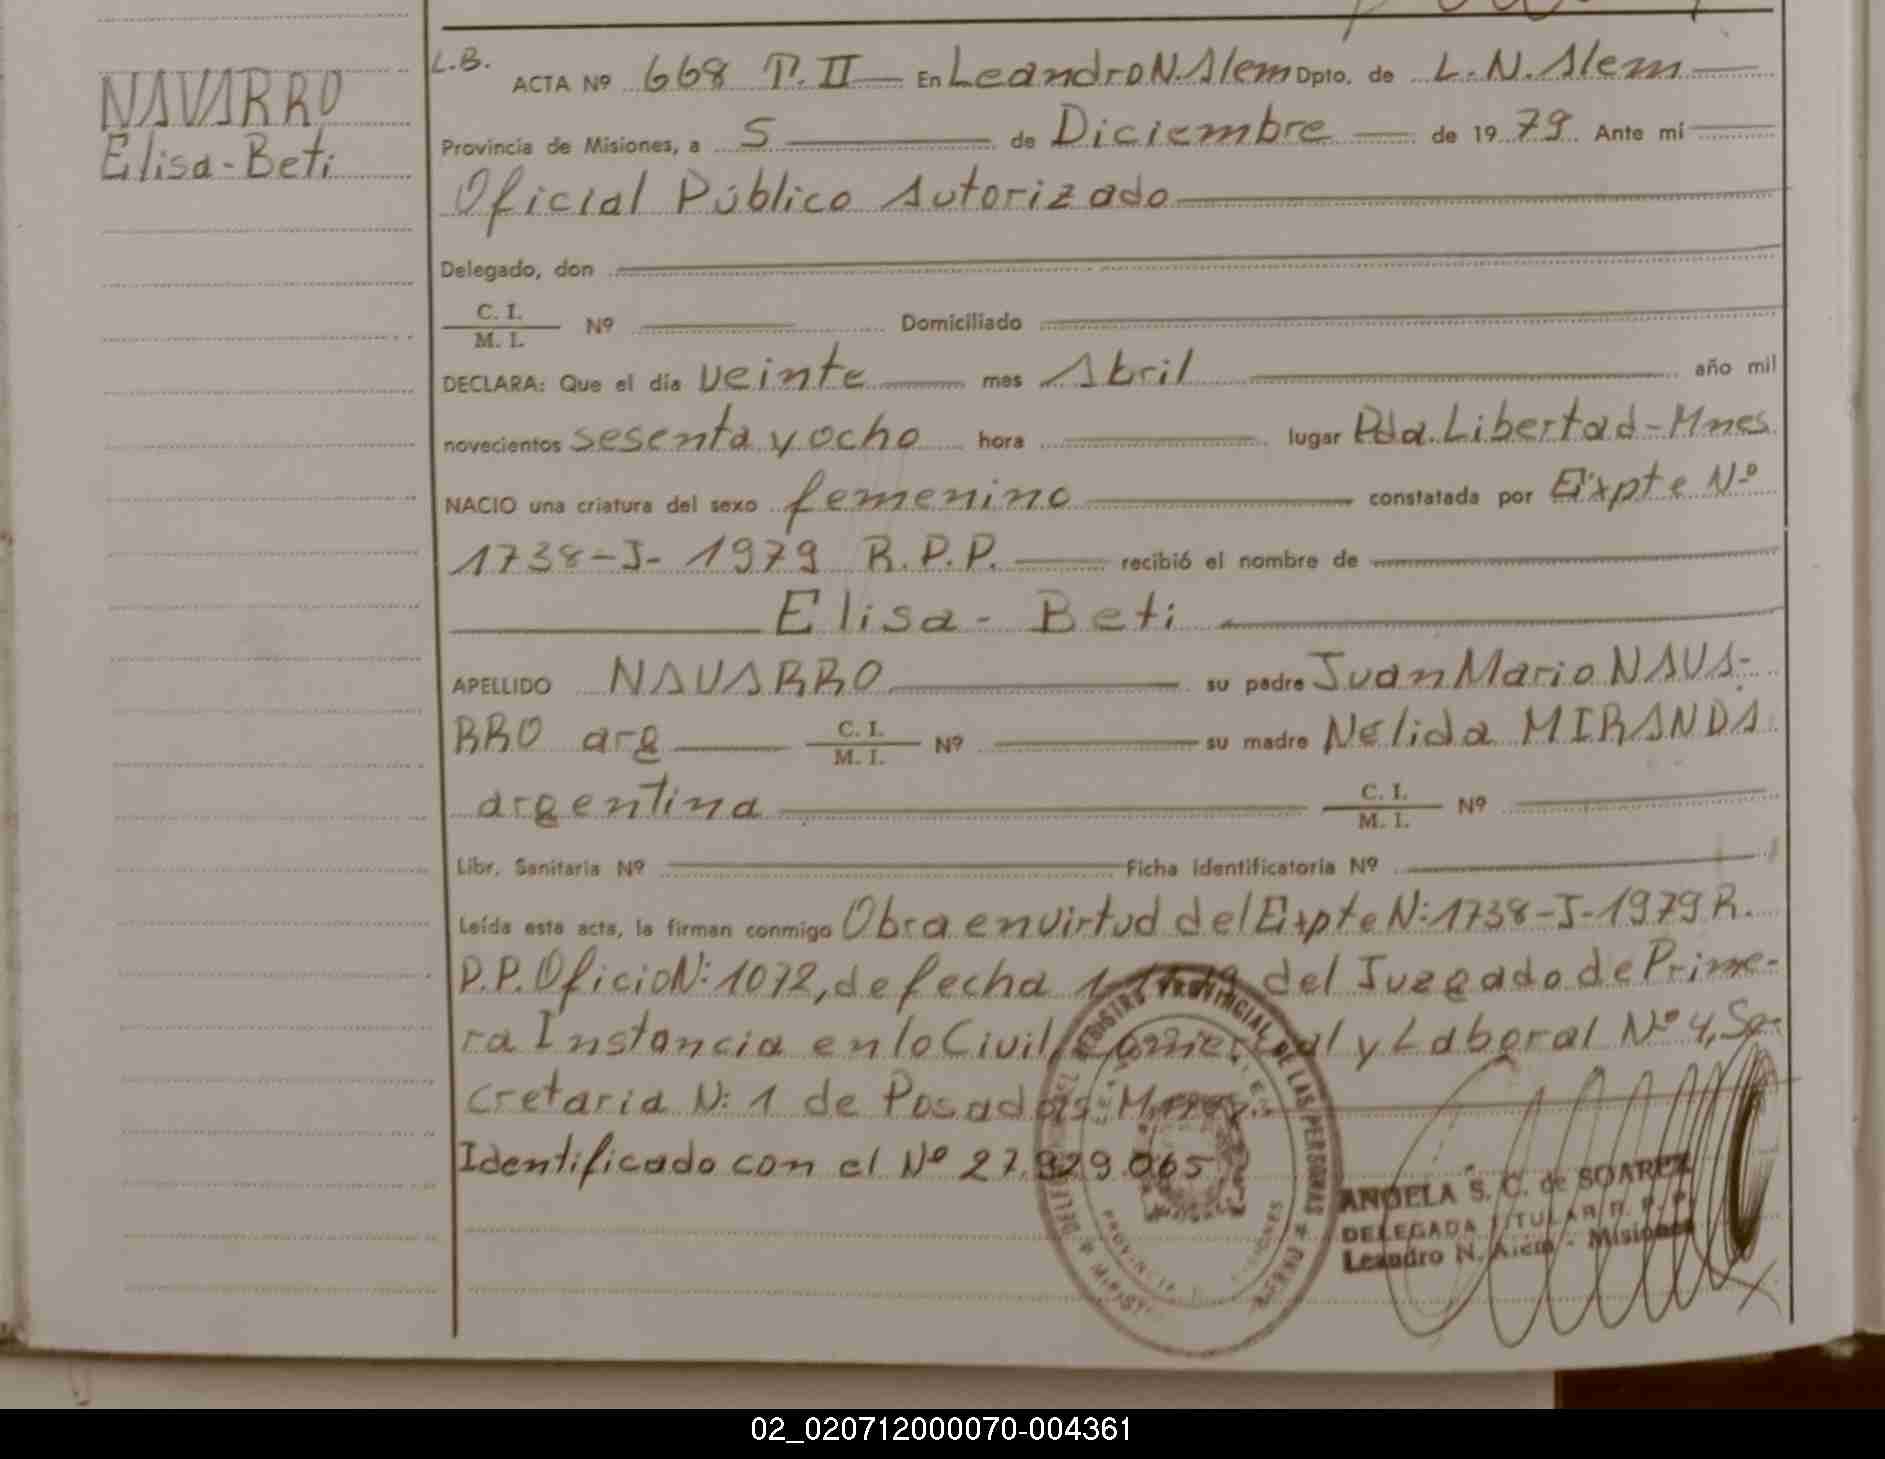 NAVARRO
Elisa-Beti
L.B.
ACTA Nº 668 T. II En Leandro N. Alem Dpto. de L. N. Alem
Provincia de Misiones, a 5 de Diciembre de 1979 Ante mí
Oficial Público Autorizado
Delegado, don
C. I.
M. I. Nº Domiciliado
DECLARA: Que el día veinte mes Abril año mil
novecientos sesenta y ocho hora lugar Pda. Libertad-Mnes.
NACIO una criatura del sexo femenino constatada por Expte Nº
1738-J-1979 R.P.P. recibió el nombre de
Elisa - Beti
APELLIDO NAVARRO su padre Juan Mario NAVA-
RRO arg C. I. M. I. Nº su madre Nélida MIRANDA
argentina C. I. M. I. Nº
Libr. Sanitaria Nº Ficha identificatoria Nº
Leída esta acta, la firman conmigo Obra en virtud del Expte N: 1738-J-1979 R.
P.P. Oficio N: 1072, de fecha del Juzgado de Prime-
ra Instancia en lo Civil, Comercial y Laboral Nº 4, Se-
cretaria N: 1 de Posadas-Mnes.
Identificado con el Nº 27.929.065
REGISTRO PROVINCIAL DE LAS PERSONAS
PROVINCIA MISIONES
ANGELA S. C. de SOAREZ
DELEGADA TITULAR R. P. P.
Leandro N. Alem - Misiones
02_020712000070-004361